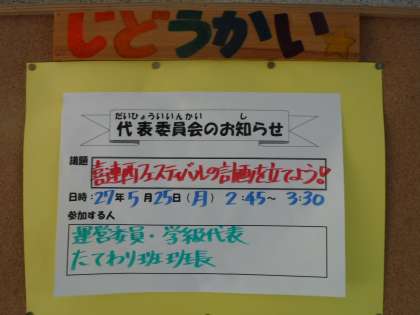 じどうかい
だいひょういいんかい し
代表委員会のお知らせ
議題 喜連西フェスティバルの計画を立てよう!
日時:27年5月25日(月) 2:45~ 3:30
参加する人
運営委員・学級代表
たてわり班班長